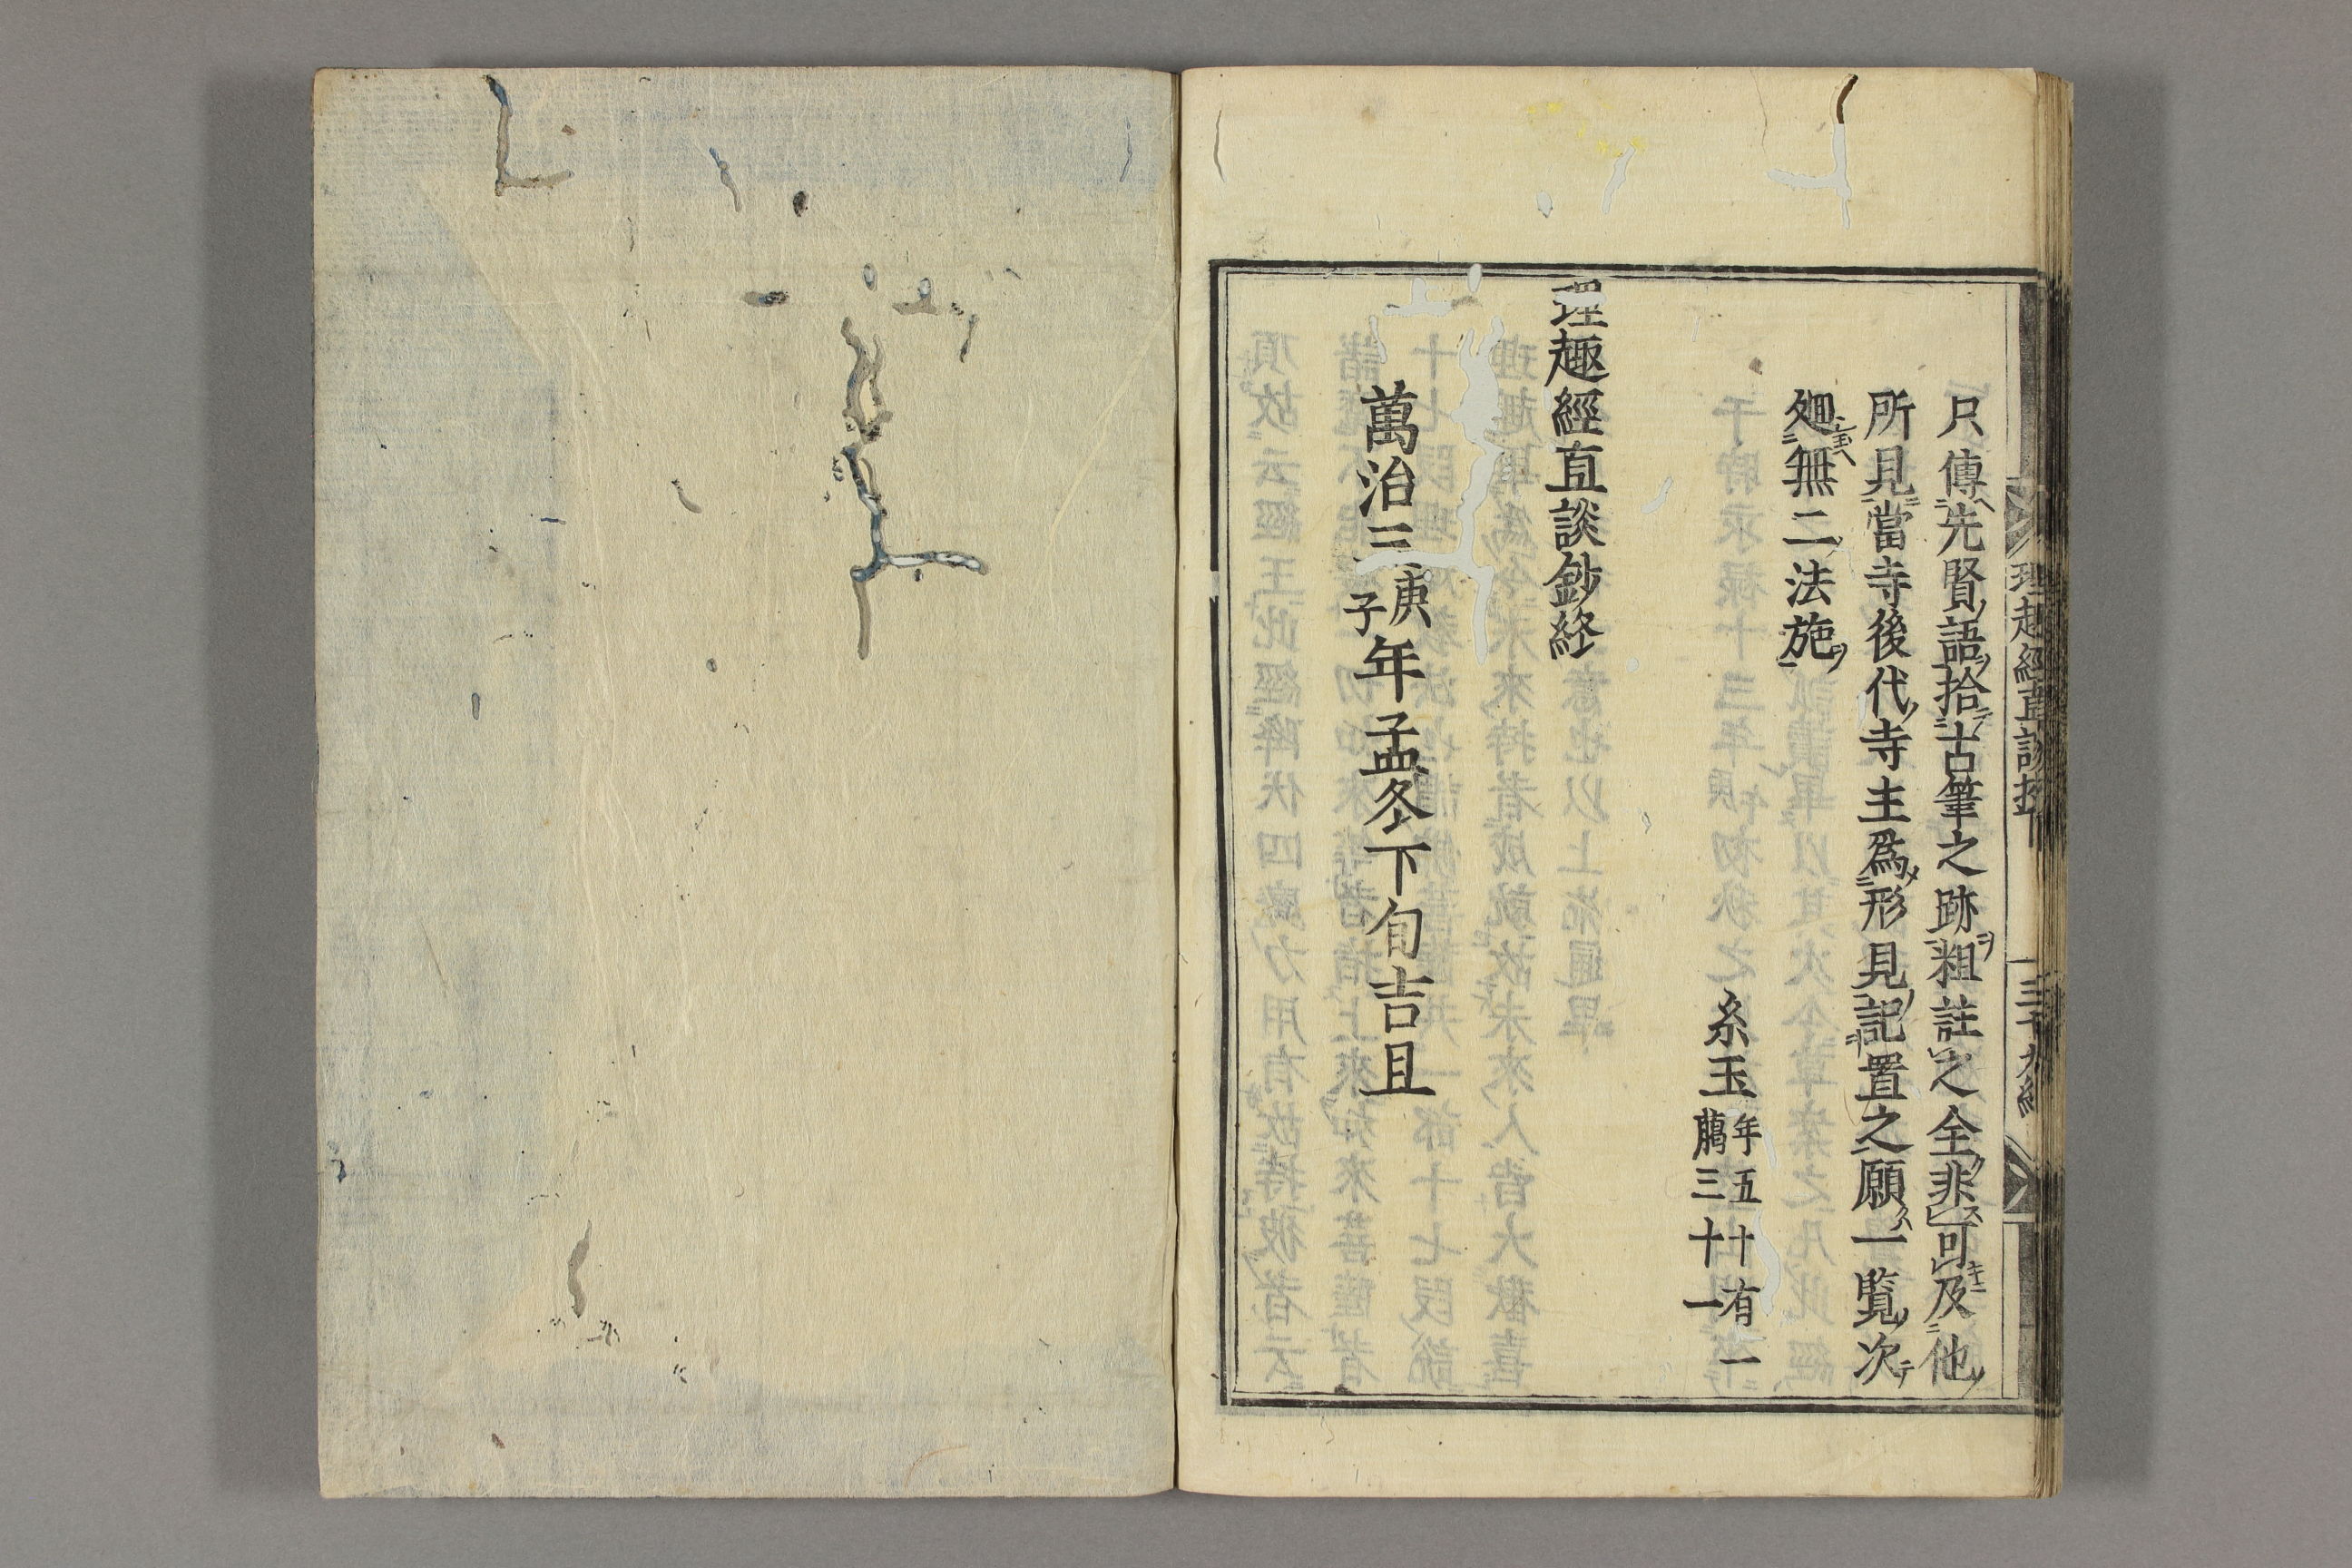 只傳先賢語拾古筆之跡粗註之全非可及他
所見當寺後代寺主爲形見記置之願一覧次
廻無二法施
糸玉年五十有一
﨟三十一
理趣經直談鈔終
萬治三庚子年孟冬下旬吉旦